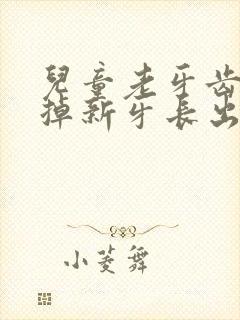 兒童老牙齒
掉新牙長出
小菱舞